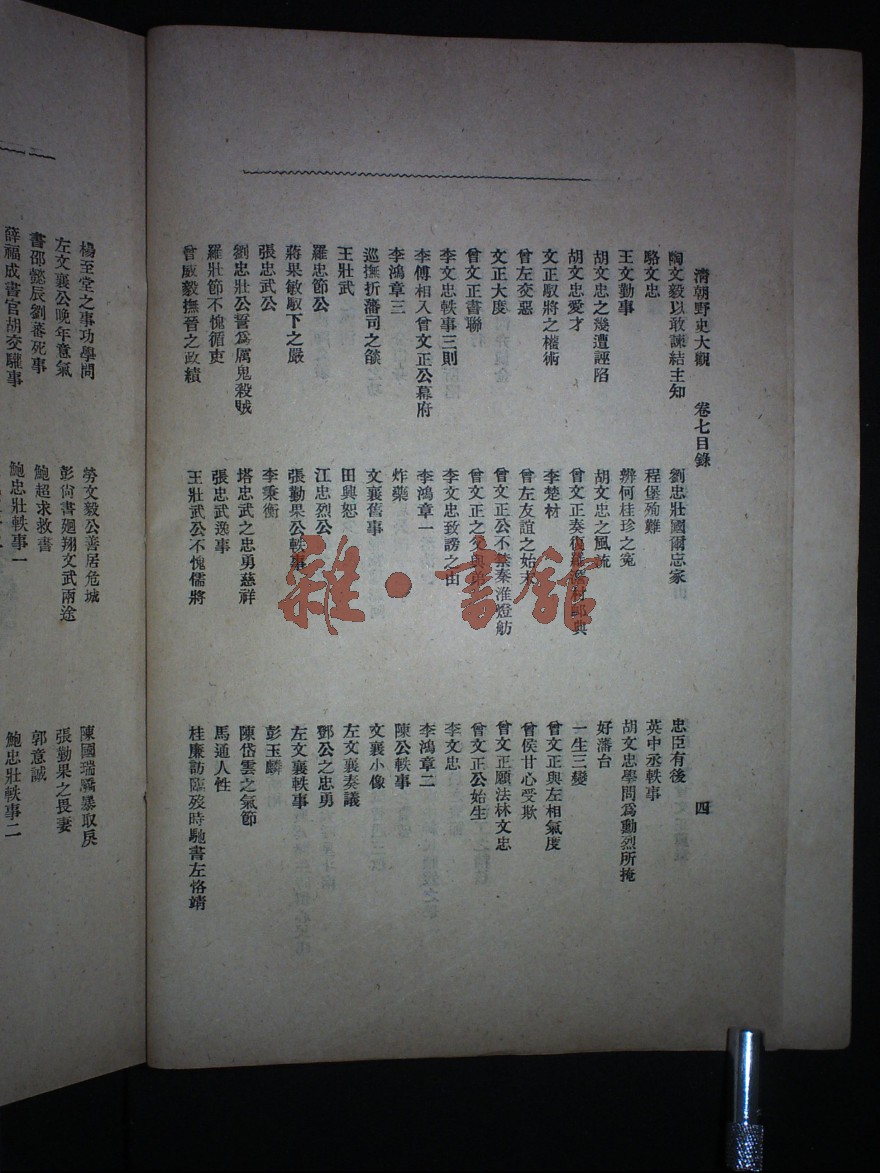 清朝野史大觀　卷七目錄　四
陶文毅以敢諫結主知
劉忠壯國爾忘家
忠臣有後
駱文忠
程堡殉難
英中丞軼事
王文勤事
辨何桂珍之寃
胡文忠學問爲勳烈所掩
胡文忠之幾遭誣陷
胡文忠之風流
好藩台
胡文忠愛才
曾文正奏復羅材典
一生三變
文正馭將之權術
李楚材
曾文正與左相氣度
曾左交惡
曾左友誼之始末
曾侯甘心受欺
文正大度
曾文正公不禁秦淮燈舫
曾文正願法林文忠
曾文正書聯
曾文正之父與弟
曾文正公始生
李文忠軼事三則
李文忠致謗之由
李文忠
李傅相入曾文正公幕府
李鴻章一
李鴻章二
李鴻章三
炸藥
陳公軼事
巡撫折藩司之餤
文襄舊事
文襄小像
王壯武
田興恕
左文襄奏議
羅忠節公
江忠烈公
鄧公之忠勇
蔣果敏馭下之嚴
張勤果公軼事
左文襄軼事
張忠武公
李秉衡
彭玉麟
劉忠壯公誓爲厲鬼殺賊
塔忠武之忠勇慈祥
陳岱雲之氣節
羅壯節不愧循吏
張忠武逸事
馬通人性
曾威毅撫晉之政績
王壯武公不愧儒將
桂廉訪臨歿時馳書左恪靖
楊至堂之事功學問
勞文毅公善居危城
陳國瑞驕暴取戾
左文襄公晚年意氣
彭尙書廻翔文武兩途
張勤果之畏妻
書邵懿辰劉蕃死事
鮑超求救書
郭意誠
薛福成書官胡交驩事
鮑忠壯軼事一
鮑忠壯軼事二
雜·書館